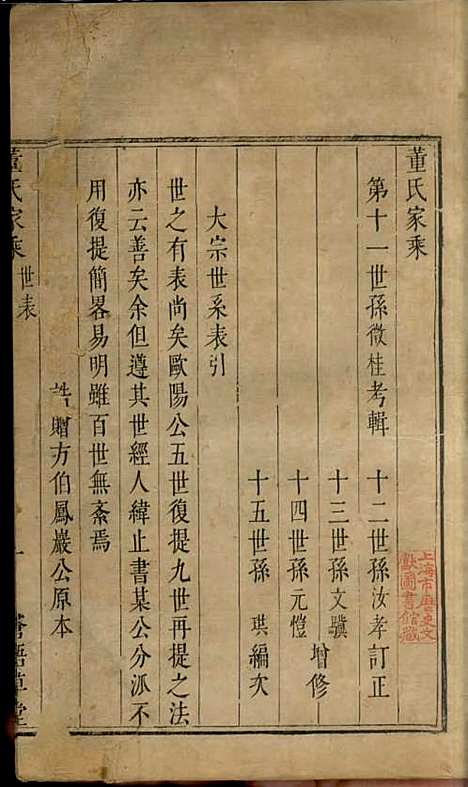 董氏家乘
第十一世孫微桂考輯 十二世孫汝孝訂正
十三世孫文驥
十四世孫元愷 增修
十五世孫 琪編次
大宗世系表引
世之有表尚矣歐陽公五世復提九世再提之法
亦云善矣余但遵其世經人緯止書某公分派不
用復提簡畧易明雖百世無紊焉
誥贈方伯鳳巖公原本
董氏家乘 世表 一 草堂
上海市歷史文
獻圖書館藏